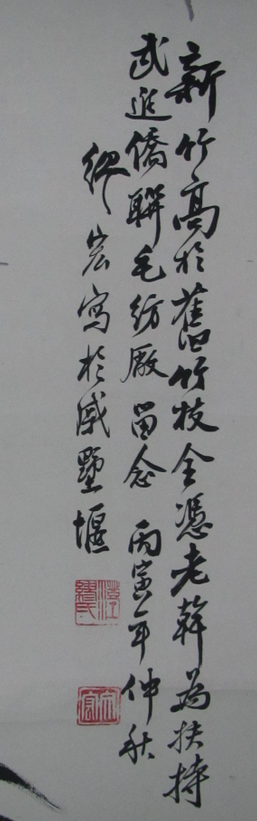 新竹高於舊竹枝全憑老幹為扶持
武進僑聯毛紡廠留念 丙寅年仲秋
繆宏寫於戚墅堰